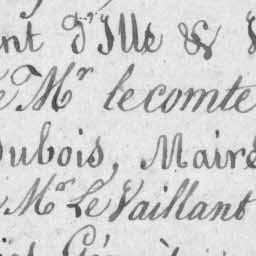 nt d'Ille &
Mr lecomte
Dubois, Maire
Mr Le Vaillant